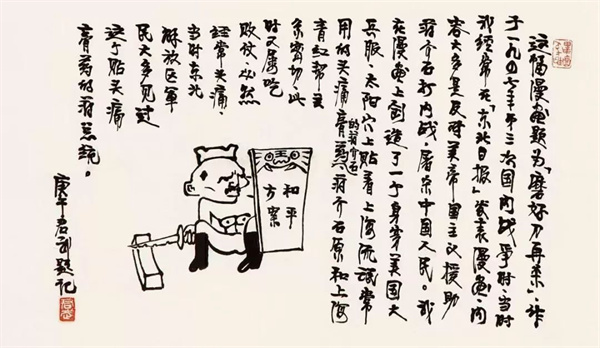 这幅漫画题为「磨好刀再杀」,作
于一九四七年第三次国内战争时,当时
我经常在「东北日报」发表漫画,内
容大多是反对美帝国主义援助
蒋介石打内战,屠杀中国人民。我
在漫画上创造了一个身穿美国大
兵服,太阳穴上贴着上海流氓常
用的头痛膏药的蒋介石,蒋介石原和上海
青红帮关
系密切,此
时又屡吃
败仗,必然
经常头痛,
当时东北
解放区军
民大多见过
这个贴头痛
膏药的蒋总统。
庚午君武题记
和平
方案
君武